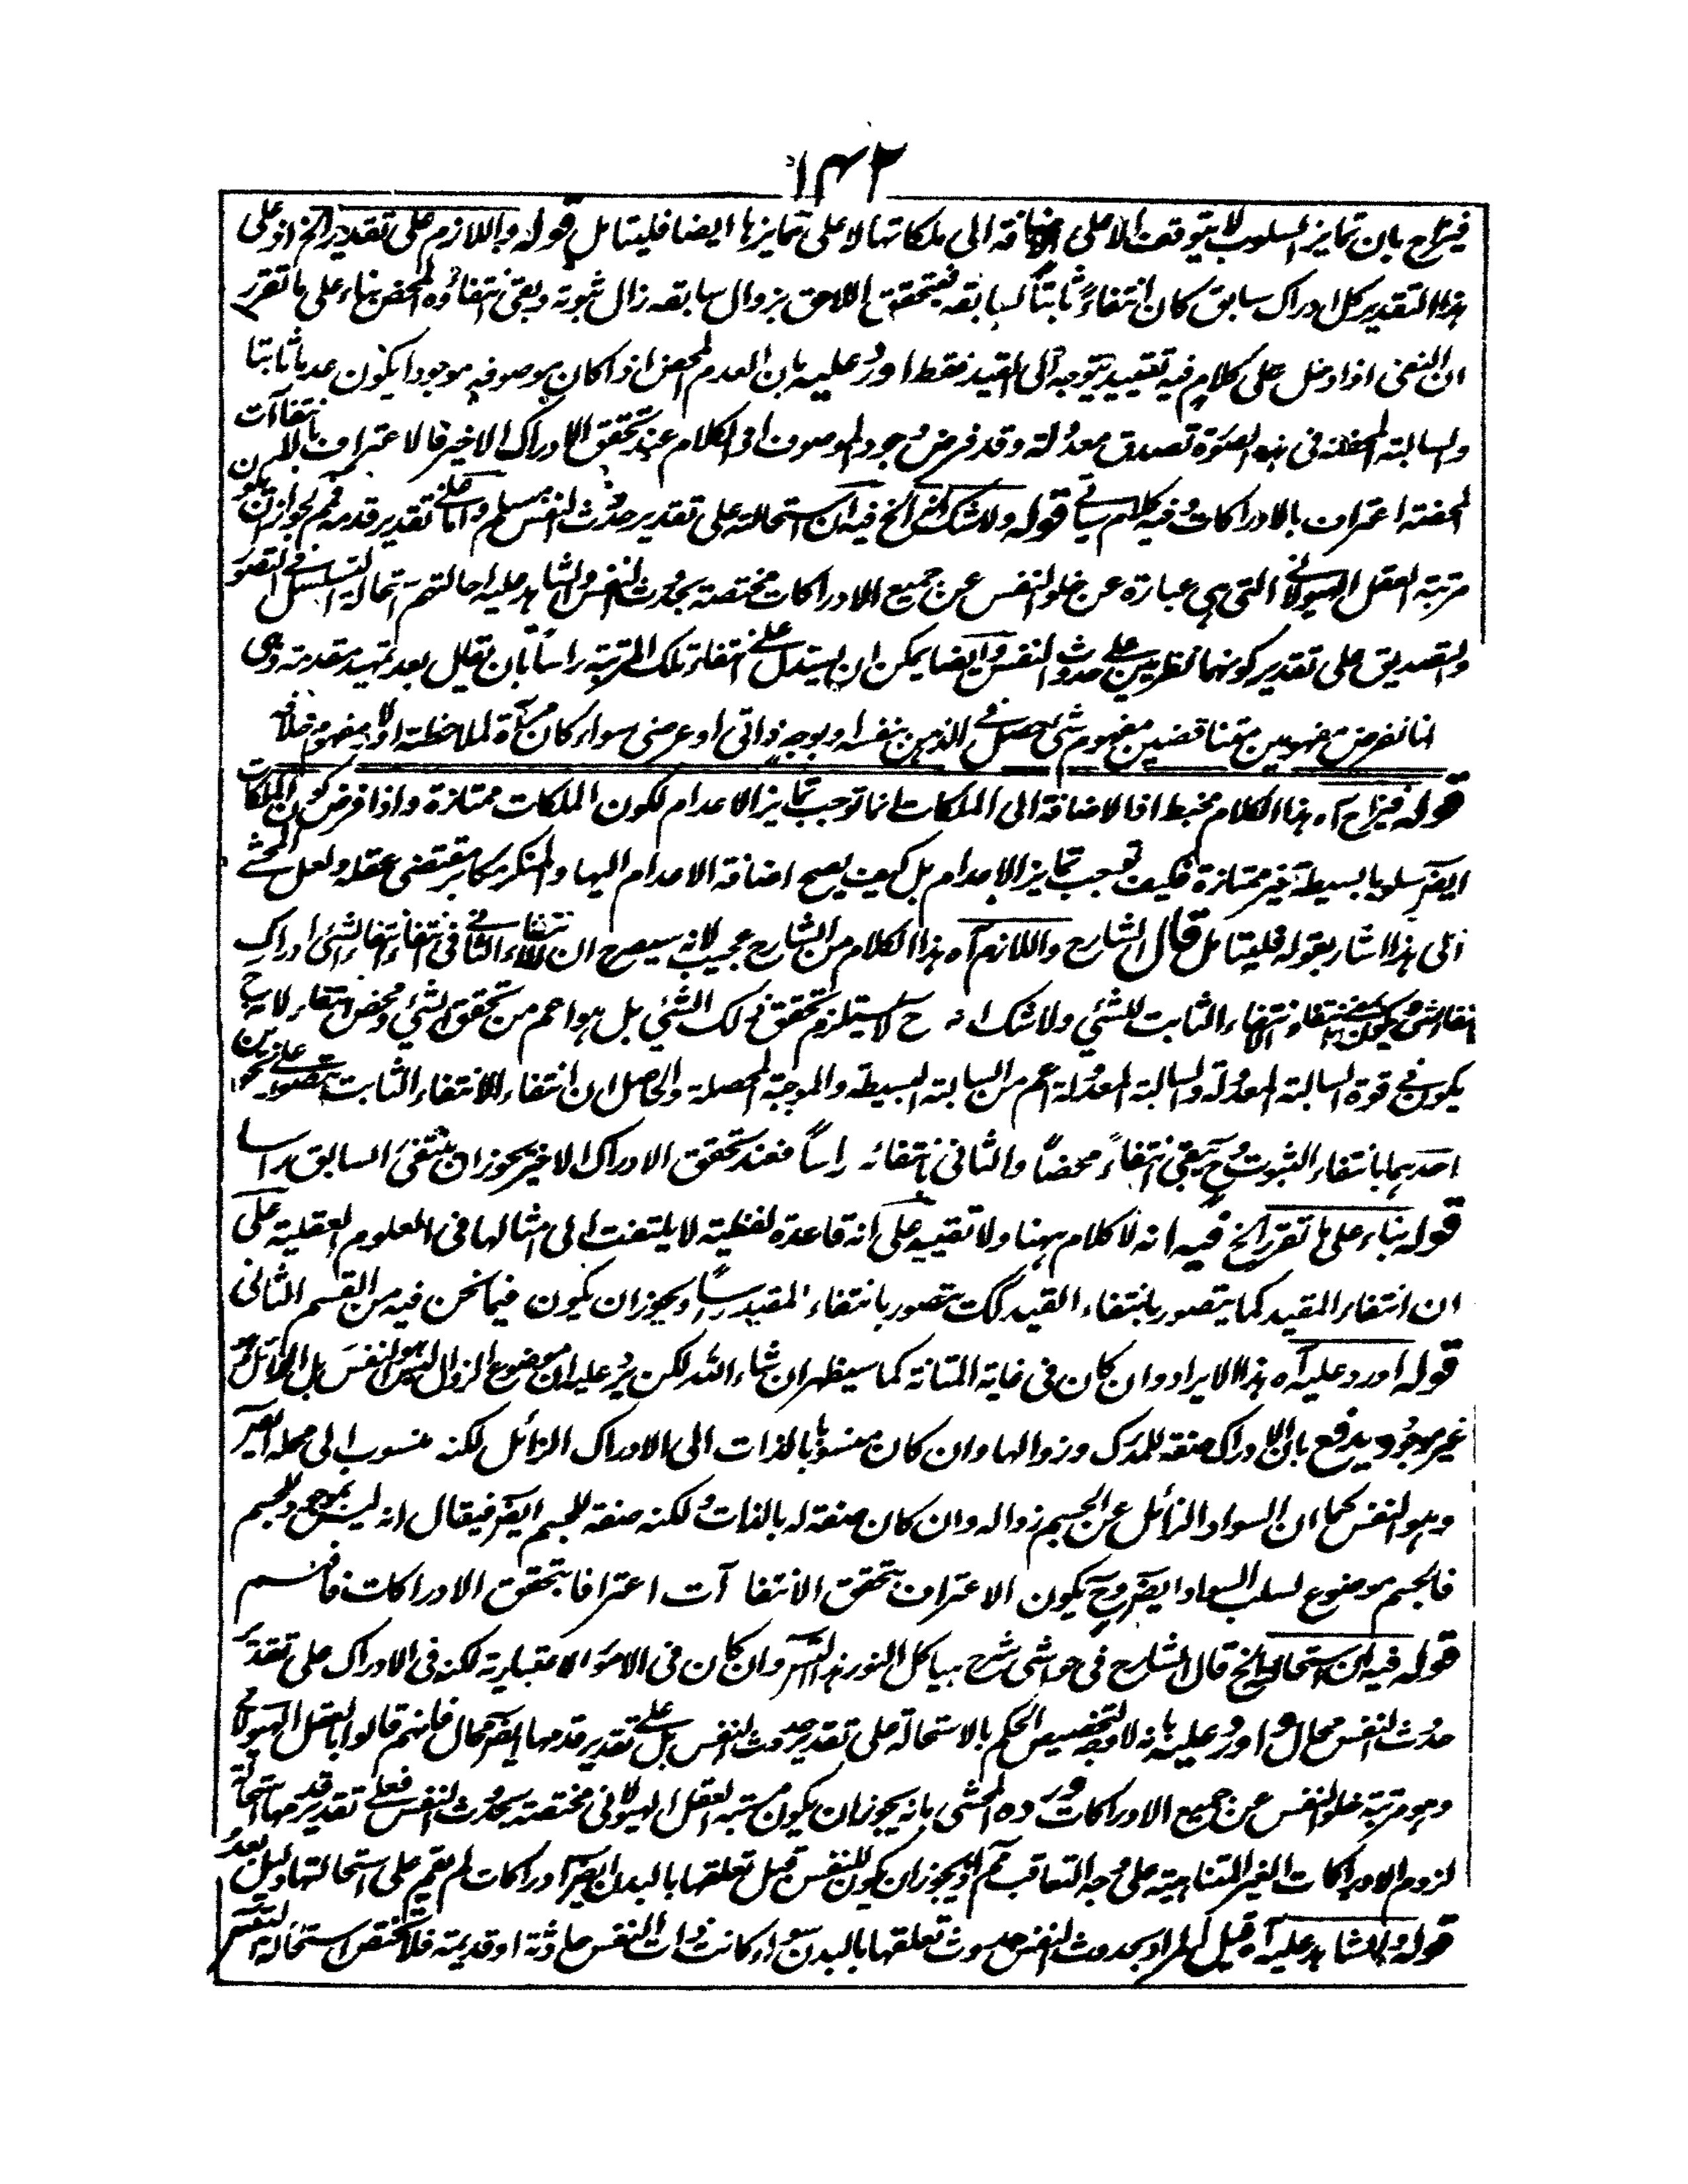 ١٤٢
فيزاح بان تمايز السلوب لا يتوقف الا على اضافة الى ملكاتها لا على تمايزها ايضا فليتامل قوله واللازم على تقدير الخ اذ على
هذا التقدير كل ادراك سابق كان انتفاءً ثابتاً لسابقه فتحقق اللاحق بزوال سابقه زال ثبوته وبقى انتفاؤه المحض بناء على ما تقرر
ان النفى اذا دخل على كلام فيه تقييد يتوجه الى القيد فقط اورد عليه بان العدم المحض اذا كان موصوفه موجودا يكون عدما ثابتا
والسالبة المحضة فى هذه الصورة تصدق معدولة وقد فرض وجود الموصوف اذ الكلام عند تحقق الادراك الاخير فالاعتراف بالانتفاآت
المحضة اعتراف بالادراكات وفيه كلام سياتى قوله ولا شك الخ فيه ان استحالته على تقدير حدوث النفس مسلم واما على تقدير قدمه فمم لجواز ان يكون
مرتبة العقل الهيولانى التى هى عبارة عن خلو النفس عن جميع الادراكات مختصة بحدوث النفس والشاهد عليه احالتهم استحالة التسلسل فى التصور
والتصديق على تقدير كونهما نظريين على حدوث النفس وايضا يمكن ان يستدل على انتفاء تلك المرتبة راساً بان يقال بعد تمهيد مقدمة وهى
انا نفرض مفهومين متناقضين مفهوم شئ حصل فى الذهن بنفسه او بوجه ذاتى او عرضى سواء كان مرآة لملاحظة اولا ومفهوم خلافه
قوله فيزاح اه هذا الكلام مخبط اذ الاضافة الى الملكات انما توجب تمايز الاعدام لكون الملكات ممتازة واذا فرض كون الملكات
ايضا سلوبا بسيطة غير ممتازة فكيف توجب تمايز الاعدام بل كيف يصح اضافة الاعدام اليها والمنكر مكابر مقتضى عقله ولعل المحشى
الى هذا اشار بقوله فليتامل قال الشارح واللازم اه هذا الكلام من الشارح عجيب لانه سيصرح ان الانتفاء الثانى فى انتفاء انتفاء الشئ ادراك
انتفاء شئ يكون انتفاء الانتفاء الثابت للشئ ولا شك انه ح لا يستلزم تحقق ذلك الشئ بل هو اعم من تحقق الشئ ومحض انتفاء لانه ح
يكون فى قوة السالبة المعدولة والسالبة المعدولة اعم من السالبة البسيطة والموجبة المحصلة والحاصل ان انتفاء الانتفاء الثابت يتصور على نحوين
احدهما بانتفاء الثبوت وح يبقى انتفاءً محضاً والثانى بانتفائه راساً فعند تحقق الادراك الاخير يجوز ان ينتفى السابق راسا
قوله بناء على ما تقرر الخ فيه انه لا كلام ههنا ولا تقييد على انه قاعدة لفظية لا يلتفت الى امثالها فى العلوم العقلية على
ان انتفاء المقيد كما يتصور بانتفاء القيد كك يتصور بانتفاء المقيد راساً ويجوز ان يكون فيما نحن فيه من القسم الثانى
قوله اورد عليه اه هذا الايراد وان كان فى غاية المتانة كما سيظهر ان شاء الله لكن يرد عليه ان موضوع الزوال ليس هو النفس بل الزائل وهو
غير موجود ويدفع بان الادراك صفة للمدرك وزوالها وان كان منسوبا بالذات الى الادراك الزائل لكنه منسوب الى محله ايضا
وهو النفس كما ان السواد الزائل عن الجسم زواله وان كان صفة له بالذات ولكنه صفة للجسم ايضا فيقال انه ليس بموجود للجسم
فالجسم موضوع لسلب السواد ايضا وح يكون الاعتراف بتحقق الانتفاآت اعترافا بتحقق الادراكات فافهم
قوله فيه ان استحالته الخ قال الشارح فى حواشى شرح هياكل النور هذا التسلسل وان كان فى الامور الاعتبارية لكنه فى الادراك على تقدير
حدوث النفس محال واورد عليه بانه لا وجه لتخصيص الحكم بالاستحالة على تقدير حدوث النفس بل على تقدير قدمها ايضا محال فانهم قالوا بالعقل الهيولانى
وهو مرتبة خلو النفس عن جميع الادراكات ورده المحشى بانه يجوز ان يكون مرتبة العقل الهيولانى مختصة بحدوث النفس فعلى تقدير قدمها استحالة
لزوم الادراكات الغير المتناهية على وجه التعاقب مم اذ يجوز ان يكون للنفس قبل تعلقها بالبدن ايضا ادراكات لم يقم على استحالتها دليل بعد
قوله والشاهد عليه اه قيل المراد بحدوث النفس حدوث تعلقها بالبدن سواء كانت ذات النفس حادثة او قديمة فلا تختص استحالة التسلسل